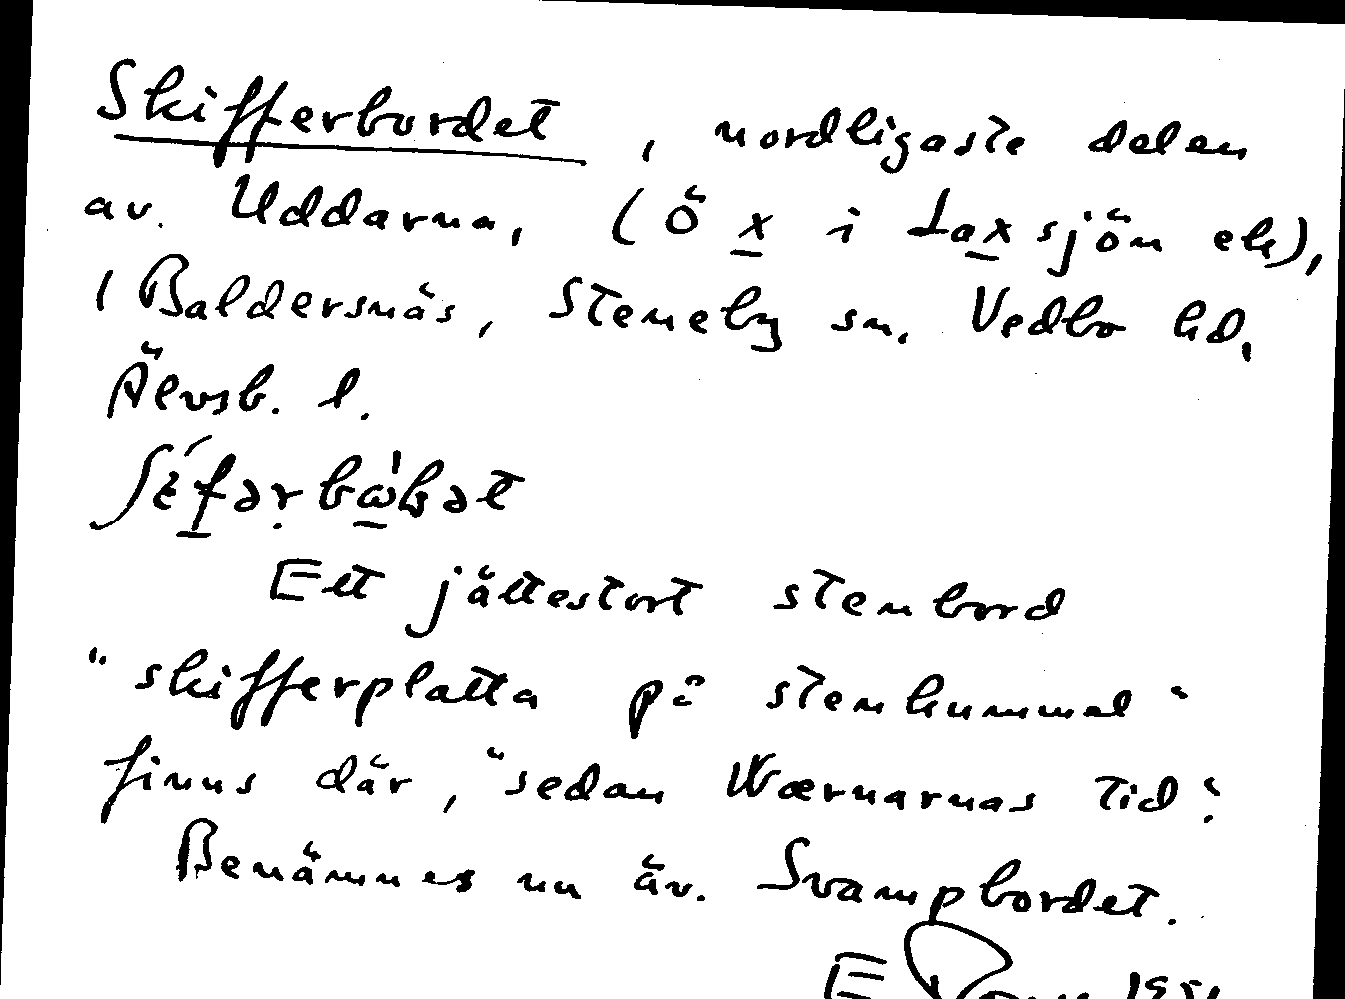 Skifferbordet, nordligaste delen
av. Uddarna, (Ö x i Laxsjön ek),
i Baldersnäs, Steneby sn. Vedbo hd,
Älvsb. l.
Ett jättestort stenbord
"skifferplatta på stenkummel"
finns där, "sedan Wærnarnas tid".
Benämnes nu äv. Svampbordet.
E